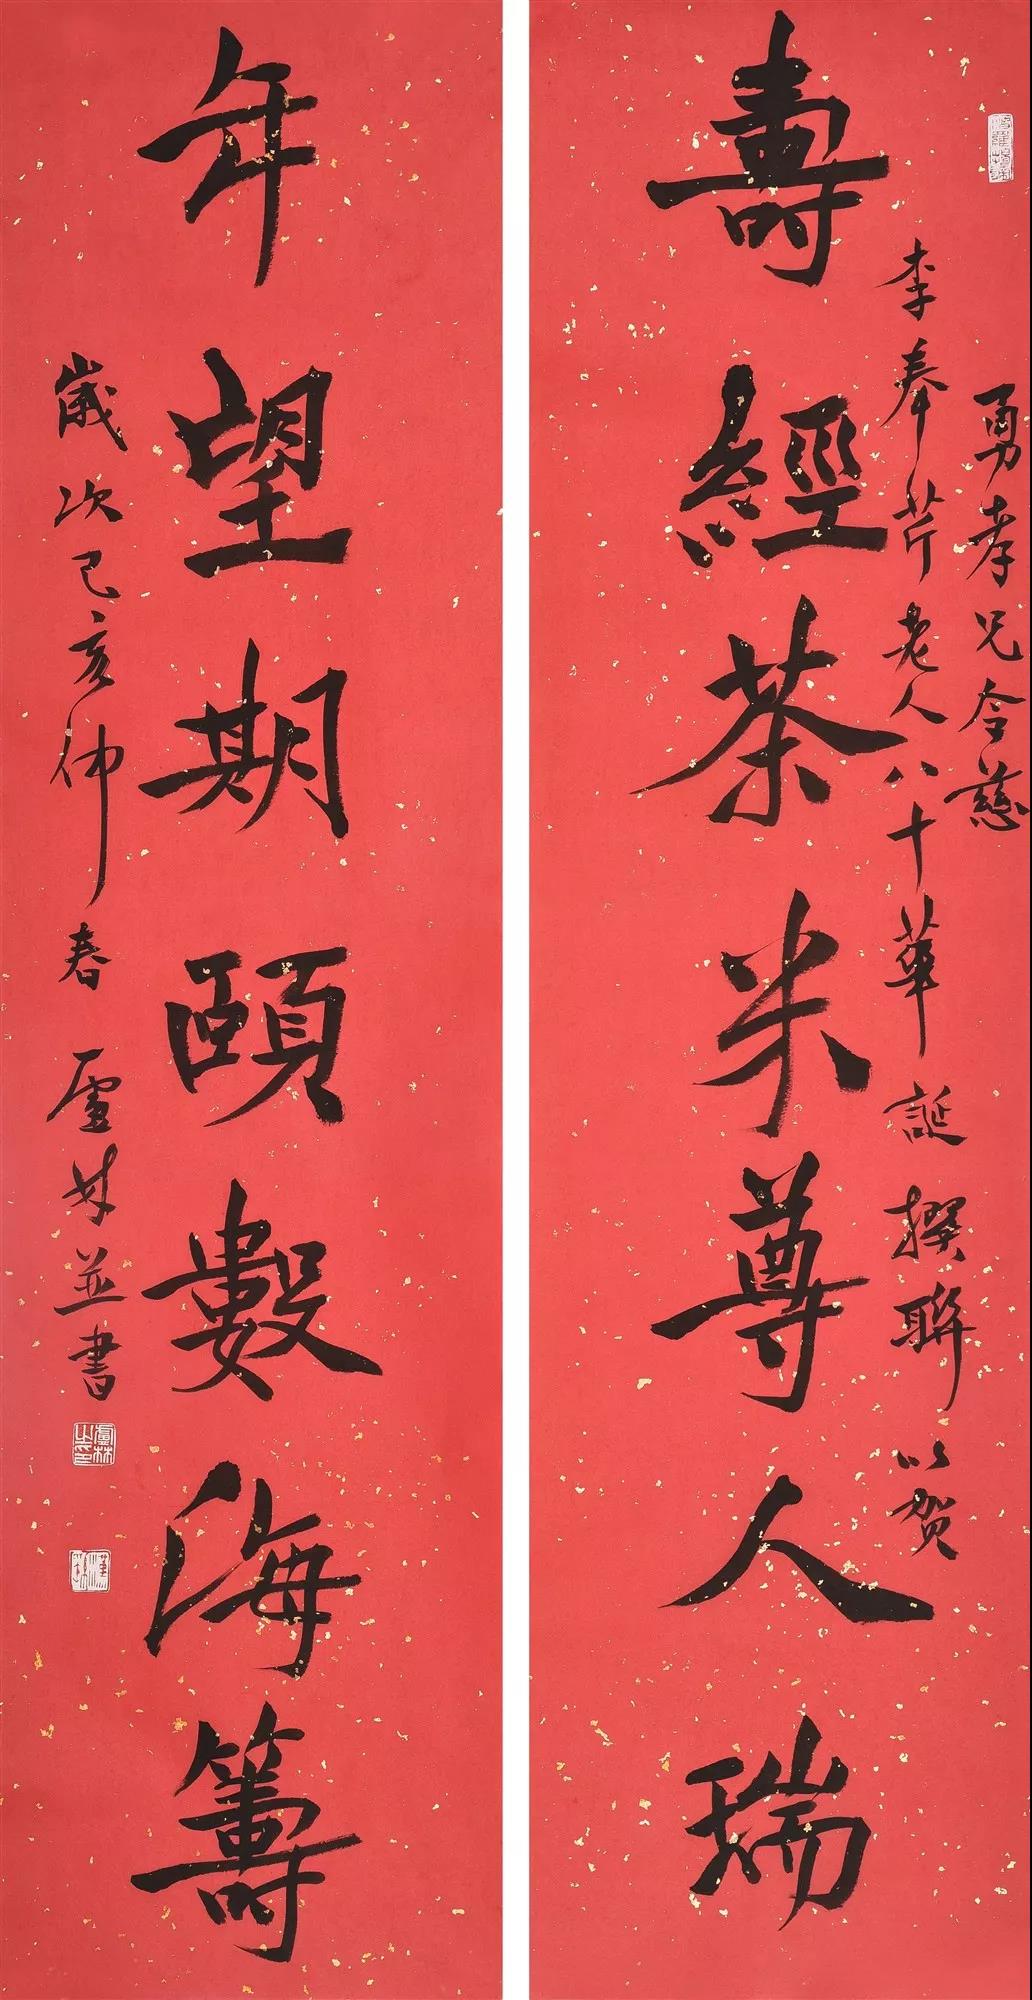 壽經茶米尊人瑞
勇孝兄令慈
李奉芹老人八十華誕撰聯以賀
年望期頤數海籌
歲次己亥仲春盧林並書
盧林之印